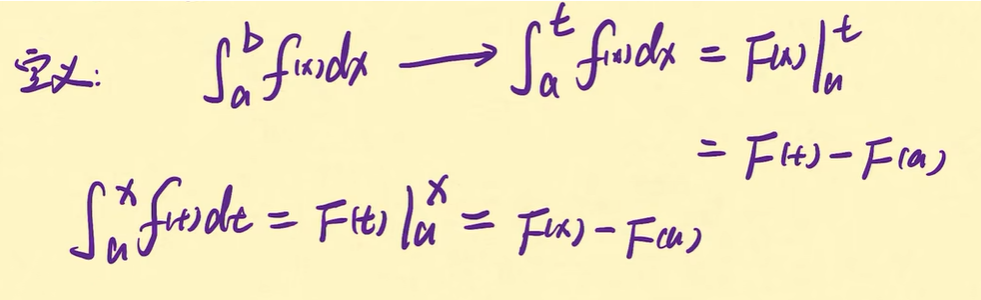 定义: ∫_a^b f(x)dx ⟶ ∫_a^t f(x)dx = F(x)|_a^t
= F(t) - F(a)
∫_a^x f(t)dt = F(t)|_a^x = F(x) - F(a)